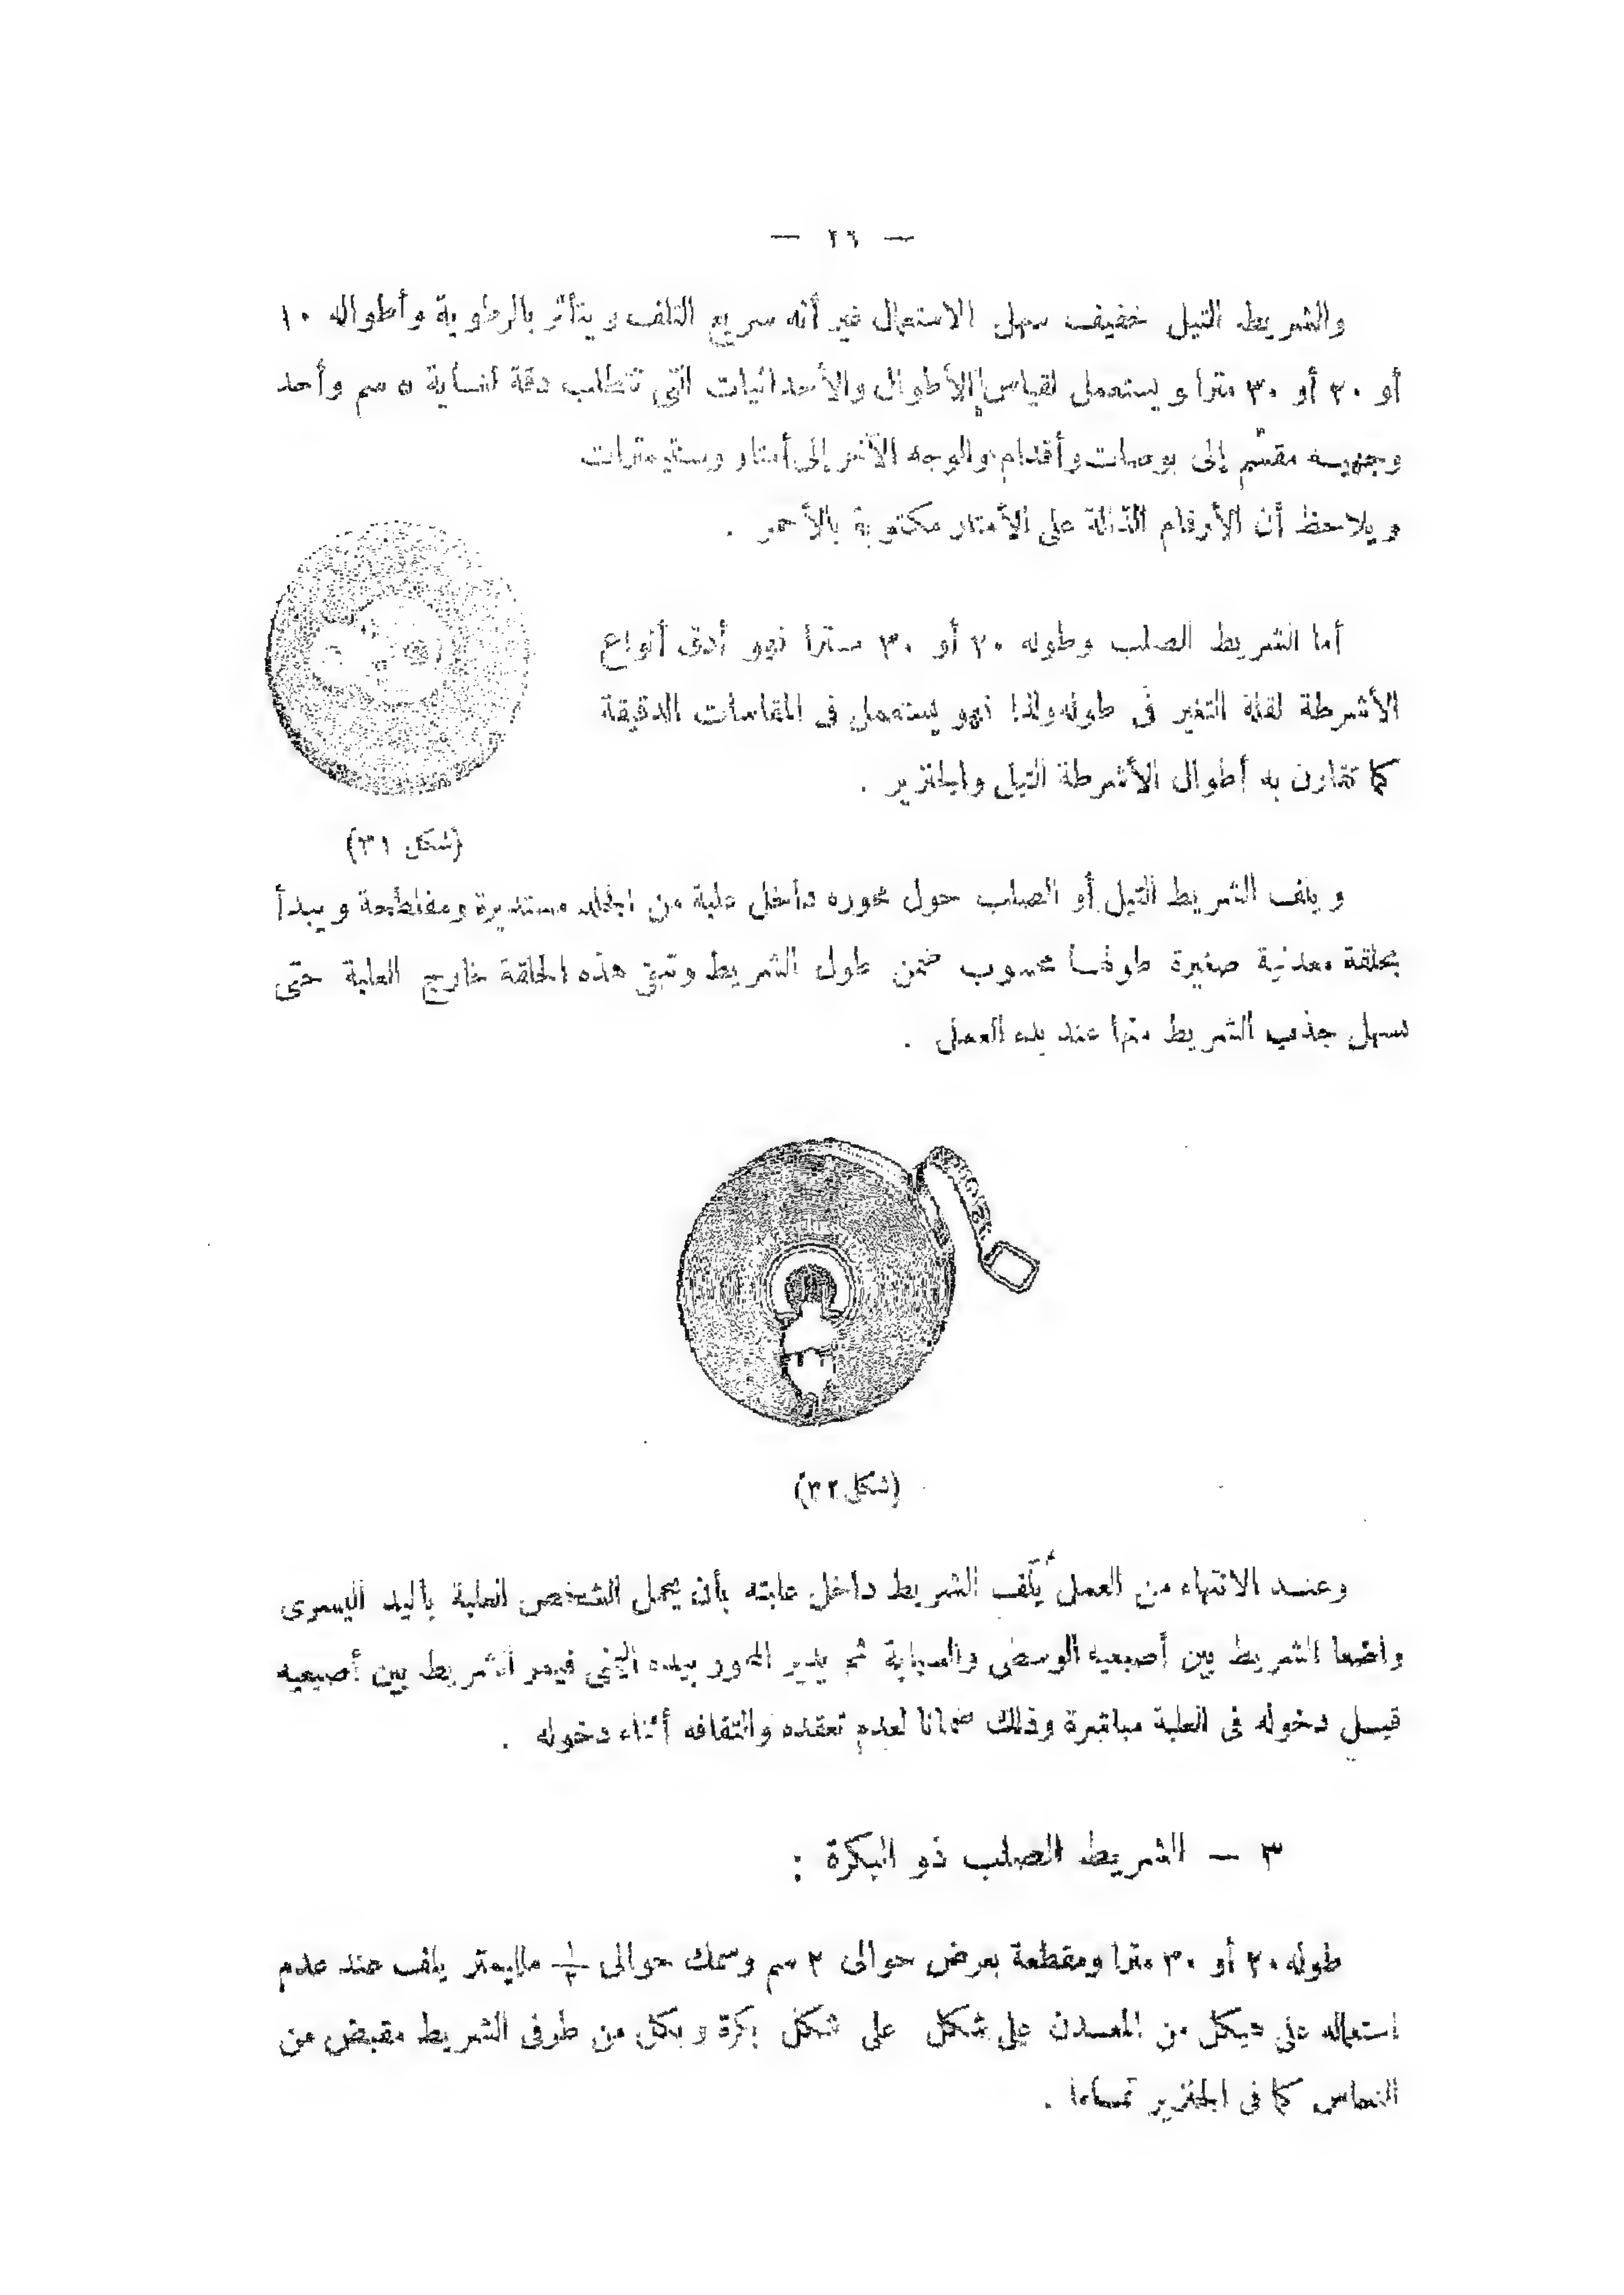 — ٢٦ —
والشريط التيل خفيف سهل الاستعمال غير أنه سريع التلف ويتأثر بالرطوبة وأطواله ١٠
أو ٢٠ أو ٣٠ مترا ويستعمل لقياس الأطوال والأحداثيات التى تتطلب دقة لغاية ٥ سم وأحد
وجهيه مقسم إلى بوصات وأقدام والوجه الآخر إلى أمتار وسنتيمترات
ويلاحظ أن الأرقام الدالة على الأمتار مكتوبة بالأحمر .
أما الشريط الصلب وطوله ٢٠ أو ٣٠ مترا فهو أدق أنواع
الأشرطة لقلة التغير فى طوله ولذا فهو يستعمل فى المقاسات الدقيقة
كما تقارن به أطوال الأشرطة التيل والجنزير .
(شكل ٣١)
ويلف الشريط التيل أو الصلب حول محوره داخل علبة من الجلد مستديرة ومفلطحة ويبدأ
بحلقة معدنية صغيرة طولها محسوب ضمن طول الشريط وتبقى هذه الحلقة خارج العلبة حتى
سهل جذب الشريط منها عند بدء العمل .
(شكل ٣٢)
وعند الانتهاء من العمل يُلَف الشريط داخل علبته بأن يحمل الشخص العلبة باليد اليسرى
واضعا الشريط بين أصبعيه الوسطى والسبابة ثم يدير المحور بيده اليمنى فيمر الشريط بين أصبعيه
قبل دخوله فى العلبة مباشرة وذلك ضمانا لعدم تعقده والتفافه أثناء دخوله .
٣ — الشريط الصلب ذو البكرة :
طوله ٢٠ أو ٣٠ مترا ومقطعة بعرض حوالى ٢ سم وسمك حوالى ملليمتر يلف عند عدم
استعماله على هيكل من المعدن على شكل على شكل بكرة وبكل من طرفى الشريط مقبض من
النحاس كما فى الجنزير تماما .